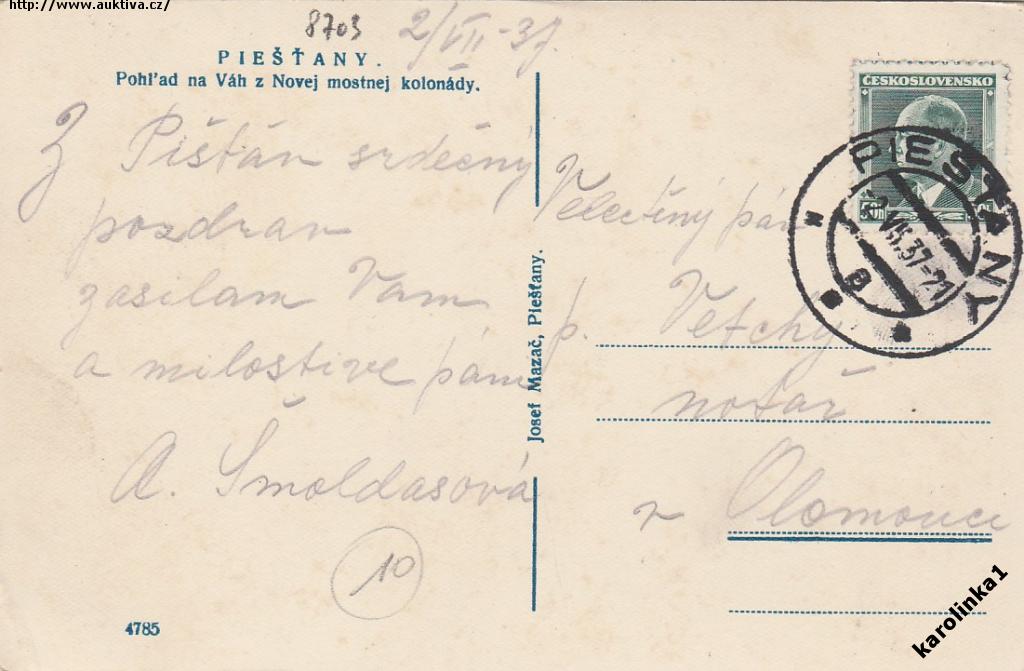 http://www.auktiva.cz/
8703
2/VII-37.
PIEŠŤANY.
Pohľad na Váh z Novej mostnej kolonády.
Z Pištán srdečný
pozdrav
zasilam Vam
a milostive páni
A. Šmoldasová
10
4785
Josef Mazač, Piešťany.
ČESKOSLOVENSKO
50h
PIEŠŤANY
2.VII.37-21
Velectěný pán
p. Vetchý
notař
v Olomouci
karolinka1